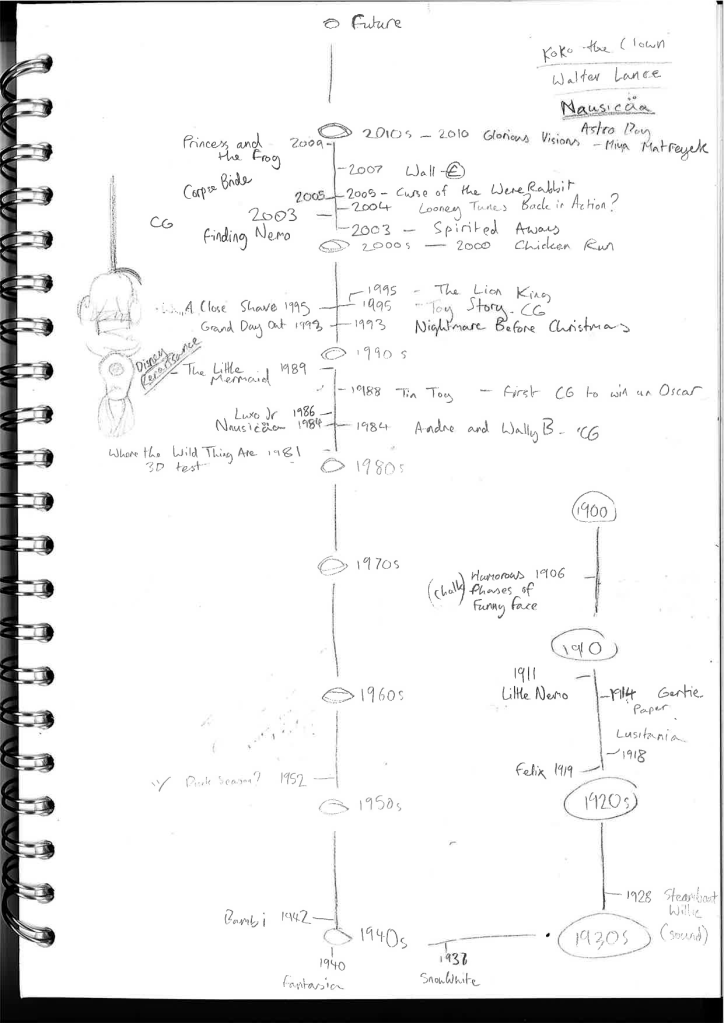 Future
Koko the Clown
Walter Lance
Nausicäa
Astro Boy
Princess and
the Frog
2009
2010s – 2010 Glorious Visions – Miya Matreyek
2007 Wall-E
Corpse Bride
2005
2005 – Curse of the WereRabbit
2004 Looney Tunes Back in Action?
CG
2003
Finding Nemo
2003 – Spirited Away
2000s – 2000 Chicken Run
1995 – The Lion King
A Close Shave 1995
1995 – Toy Story – CG
Grand Day Out 1993
1993 Nightmare Before Christmas
1990s
Disney
Renaissance
– The Little
Mermaid
1989
1988 Tin Toy – First CG to win an Oscar
Luxo Jr 1986
Nausicäa 1984
1984 Andre and Wally B – CG
Where the Wild Thing Are 1981
3D test
1980s
1900
1970s
(chalk) Humorous 1906
Phases of
Funny Face
1910
1911
Little Nemo
1960s
1914 Gertie
Paper
Lusitania
1918
Felix 1919
1952
1950s
1920s
1928 Steamboat
Willie
(sound)
Bambi 1942
1940s
1930s
1940
Fantasia
1937
Snow White